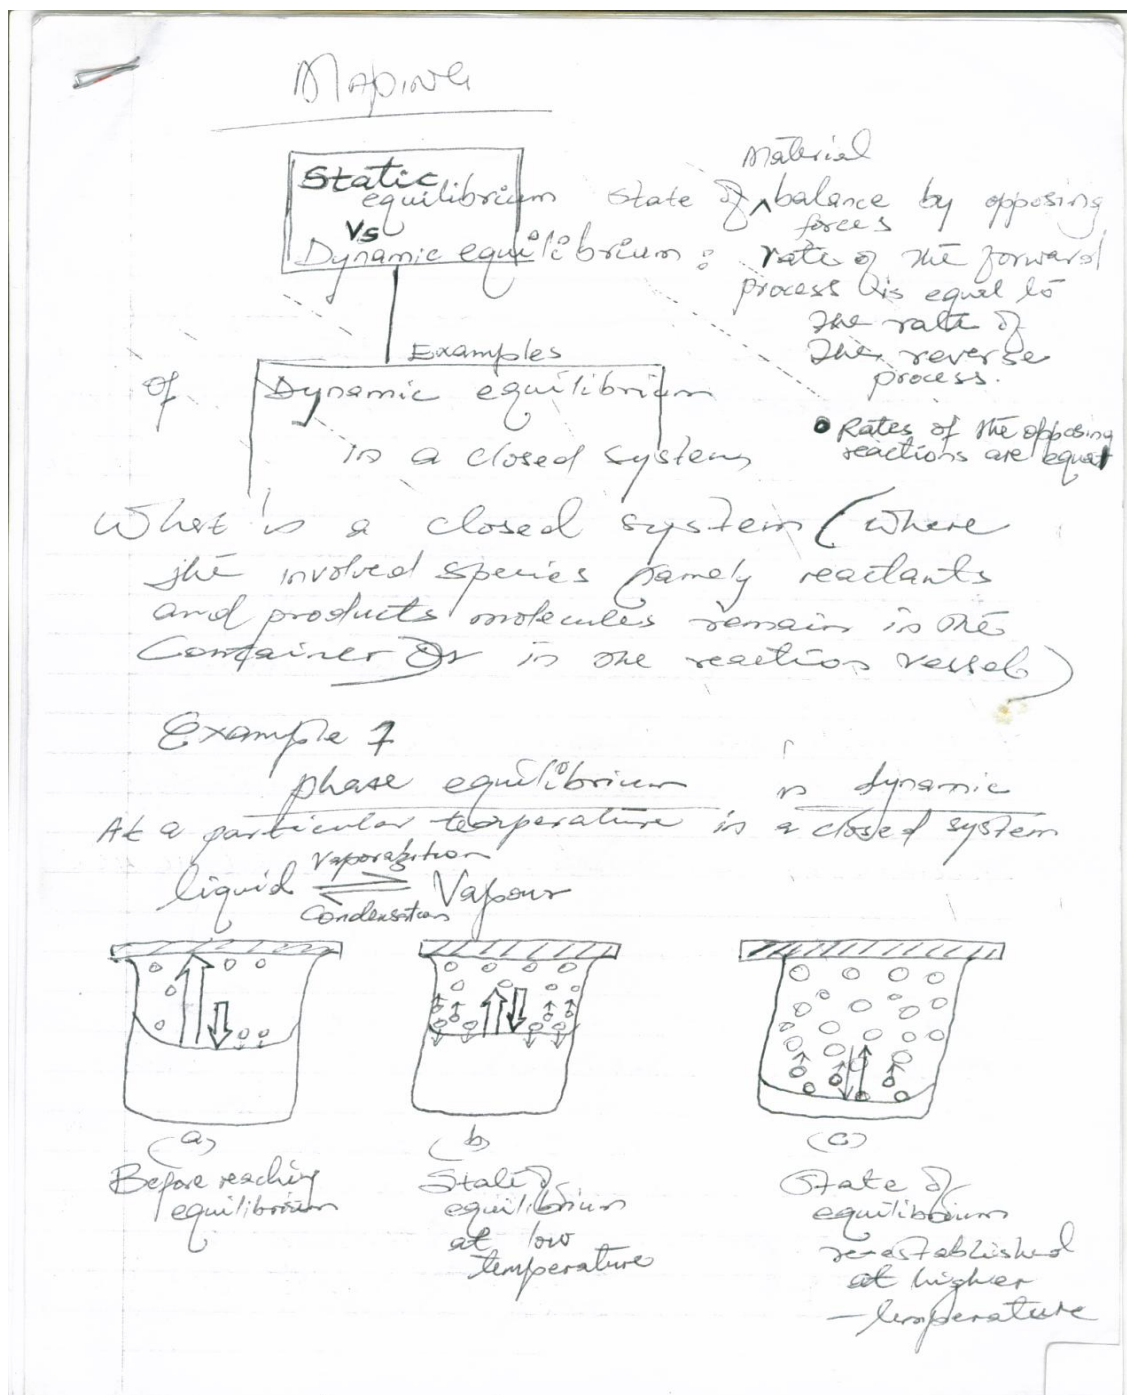 Maping
Material
Static
equilibrium State of ^ balance by opposing
forces
Vs
Dynamic equilibrium : rate of the forward
process is equal to
the rate of
the reverse
process.
Examples
of Dynamic equilibrium
in a closed system
• Rates of the opposing
reactions are equal
What is a closed system (where
the involved species namely reactants
and products molecules remain in the
Container or in the reaction vessel)
Example 1
phase equilibrium is dynamic
At a particular temperature in a closed system
Vaporabition
liquid ⇌ Vapour
Condensation
(a) (b) (c)
Before reaching
equilibrium
State of
equilibrium
at low
temperature
State of
equilibrium
re-established
at higher
-temperature